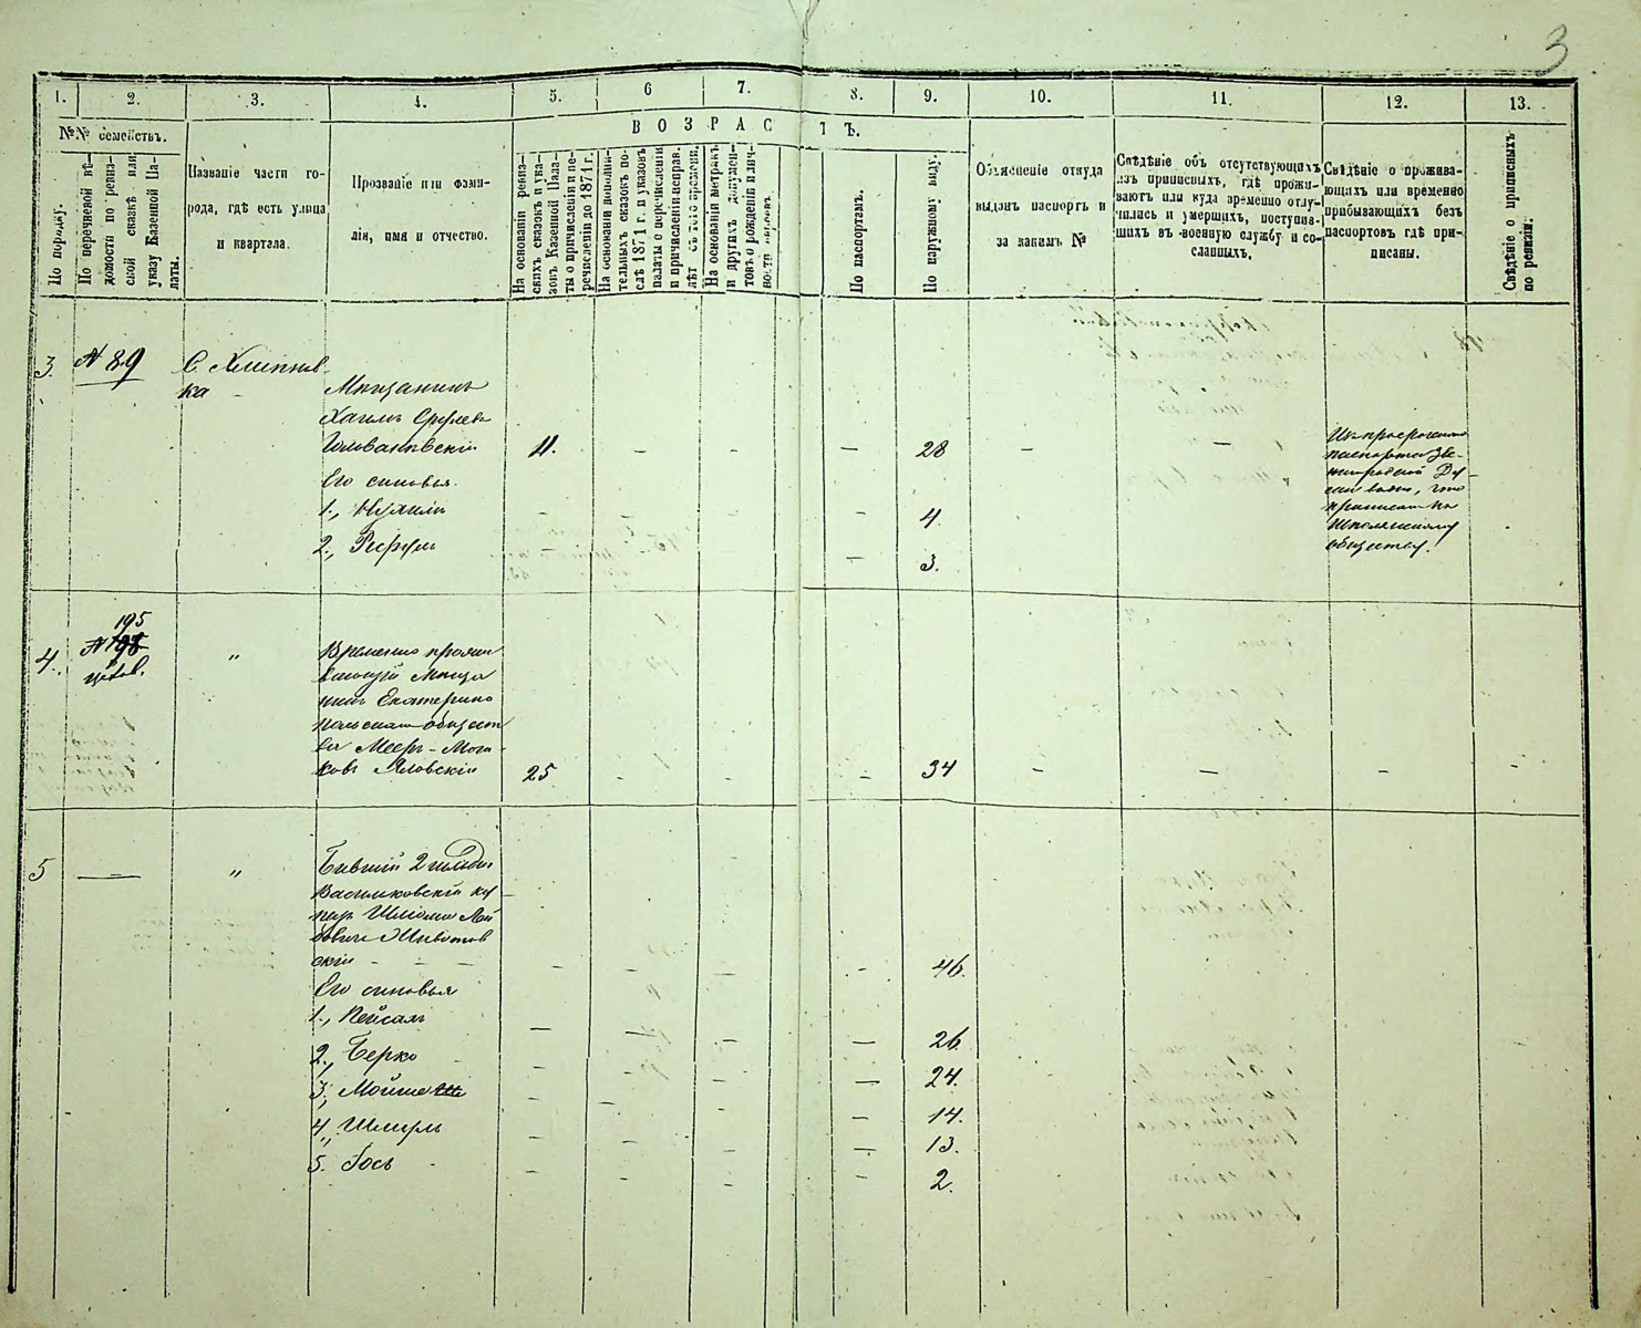 3
1.
2.
3.
4.
5.
6
7.
8.
9.
10.
11.
12.
13.
№№ семействъ.
ВОЗРАСТЪ.
По порядку.
По перечневой вѣ-
домости по ревиз-
ской сказкѣ или
указу Казенной Па-
латы.
Названіе части го-
рода, гдѣ есть улица
и квартала.
Прозваніе или фами-
лія, имя и отчество.
На основаніи ревиз-
скихъ сказокъ и ука-
зовъ Казенной Пала-
ты о причисленіи и пе-
речисленіи до 1871 г.
На основаніи дополни-
тельныхъ сказокъ по-
слѣ 1871 г. и указовъ
палаты о перечисленіи
и причисленіи исправ.
лѣт съ того времени.
На основаніи метрикъ
и другихъ докумен-
товъ о рожденіи и лич-
ности
По паспортамъ.
По наружному виду.
Объясненіе откуда
выданъ паспортъ и
за какимъ №
Свѣдѣніе объ отсутствующихъ
изъ приписныхъ, гдѣ прожи-
ваютъ или куда временно отлу-
чились и умершихъ, поступив-
шихъ въ военную службу и со-
сланныхъ.
Свѣдѣніе о прожива-
ющихъ или временно
прибывающихъ безъ
паспортовъ гдѣ при-
писаны.
Свѣдѣніе о приписныхъ
по ревизіи.
3.
№ 89
С.
ка
Мѣщанинъ
Хаимъ
11.
-
-
—
28
—
—
Его сыновья.
1.,
-
-
-
—
4.
2.,
—
3.
паспорта Зве-
видно, что
обществу.
4.
195
"
Временно прожи
вающій Мѣща
нинъ Екатерино
польскаго общест
ва Мееръ-Мош
ковъ Яловскій
25
-
-
—
34
—
—
—
-
5
—
"
Бывшій 2 гильдіи
Васильковскій ку
пецъ Шлiома Лей
бовичъ Животов
скій
-
-
—
-
46.
Его сыновья
1., Пейсахъ
—
—
—
—
26.
2., Берко
—
—
—
—
24.
3., Мойше
—
—
—
—
14.
4., Шмуль
—
—
—
—
13.
5. Іось
—
-
—
-
2.